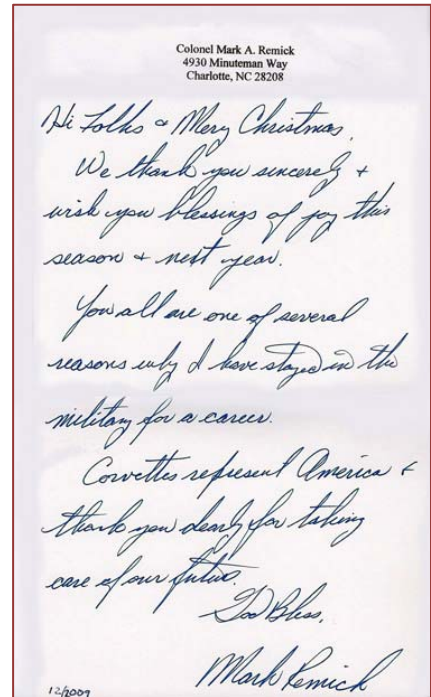 Colonel Mark A. Remick
4930 Minuteman Way
Charlotte, NC 28208
Hi Folks & Merry Christmas,
We thank you sincerely &
wish you blessings of joy this
season & next year.
You all are one of several
reasons why I have stayed in the
military for a career.
Corvettes represent America &
thank you dearly for taking
care of our future.
God Bless,
Mark Remick
12/2009